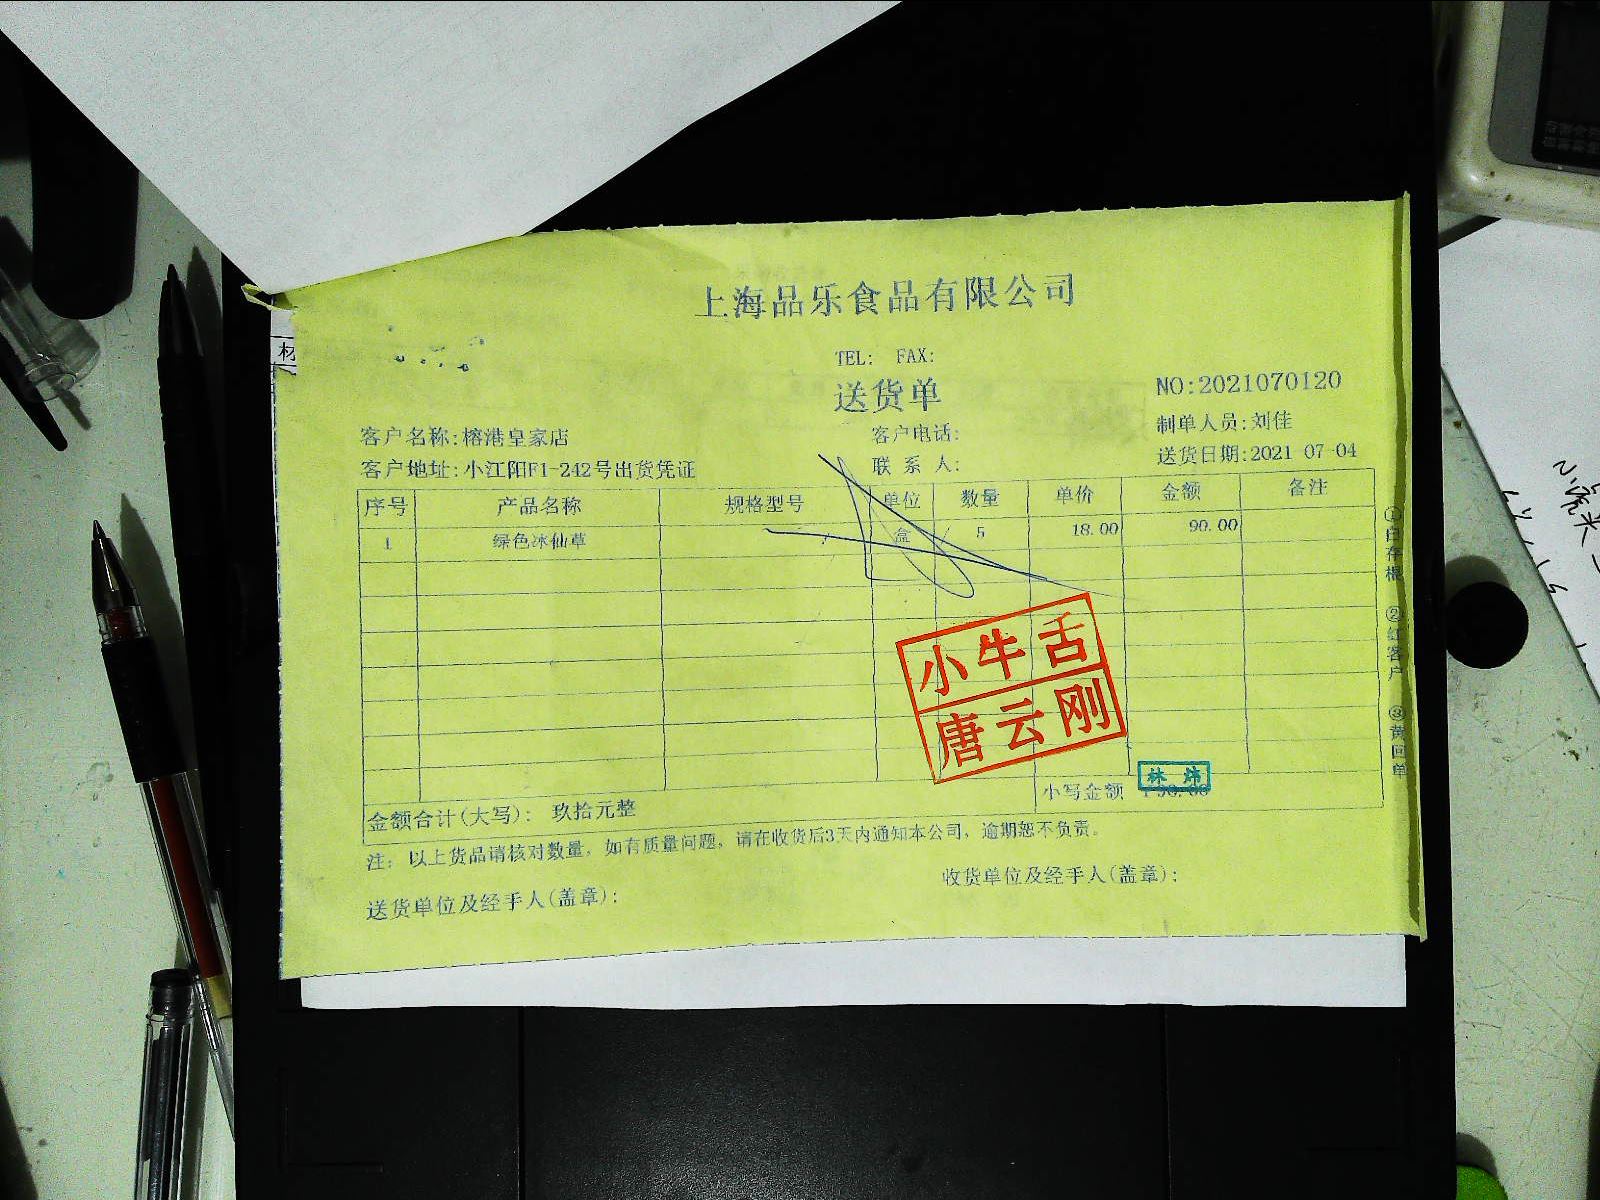 上海品乐食品有限公司
TEL: FAX:
送货单
NO:2021070120
客户名称:榕港皇家店
客户电话:
制单人员:刘佳
客户地址:小江阳F1-242号出货凭证
联 系 人:
送货日期:2021 07-04
序号 产品名称 规格型号 单位 数量 单价 金额 备注
1 绿色冰仙草 盒 5 18.00 90.00
①白存根 ②红客户 ③黄回单
小牛舌
唐云刚
林炜
金额合计(大写): 玖拾元整
小写金额 ¥90.00
注: 以上货品请核对数量, 如有质量问题, 请在收货后3天内通知本公司, 逾期恕不负责。
送货单位及经手人(盖章):
收货单位及经手人(盖章):
材